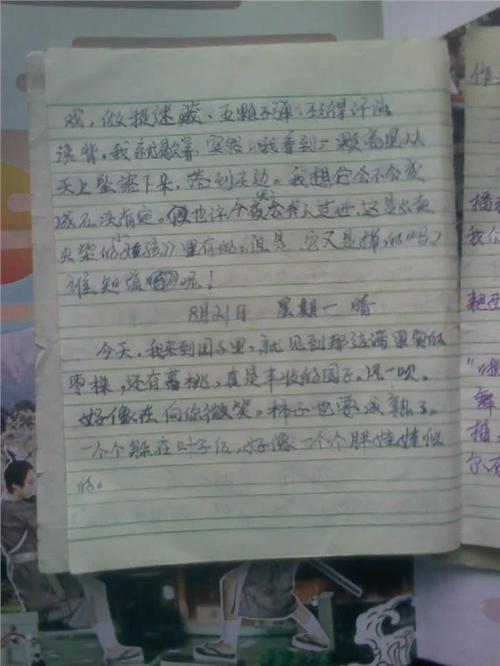 戏，做捉迷藏、丑颗子弹；玩得汗流
浃背，我就歇着 突然，我看到一颗流星从
天上坠落下来，落到天边。我想它会不会变
成石头有它。但也许今夜会有人过世，这是《卖
火柴的小女孩》里有的。但是，它又是掉的吗？
谁知道呢！
8月21日 星期一 晴
今天，我来到园子里，就见到那挂满果实的
枣株，还有葡桃，真是丰收的园子。风一吹。
好像在向你微笑。柿子也要成熟了。
一个个躲在叶子后，好像一个个胖娃娃似
的。
作
播
我们
"
舞